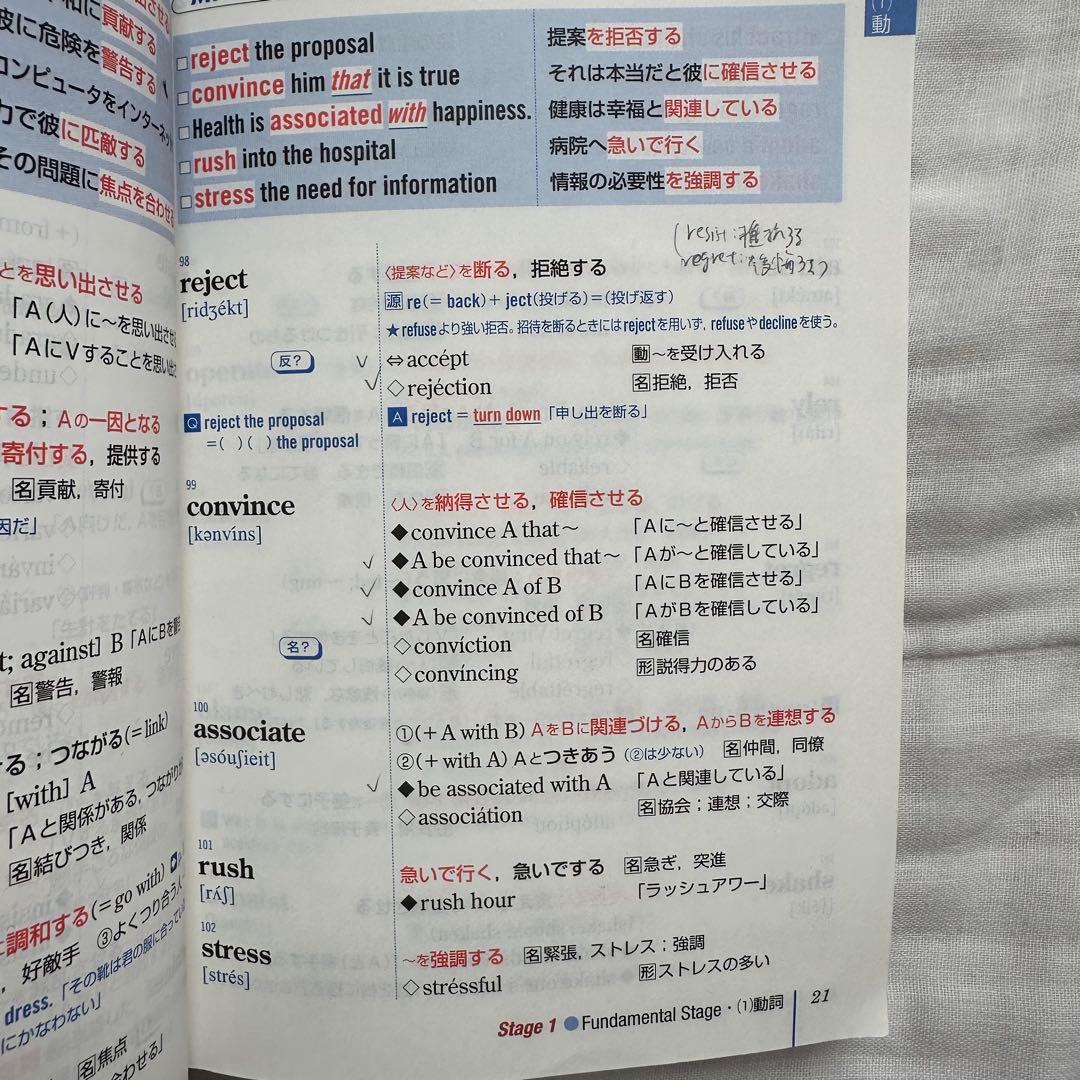 貢献する
彼に危険を警告する
コンピュータをインターネッ
力で彼に匹敵する
その問題に焦点を合わせる
とを思い出させる
「A(人)に〜を思い出させ
「AにVすることを思い出
する；Aの一因となる
寄付する，提供する
名貢献，寄付
因だ」
t; against] B「AにBを警
名警告，警報
る；つながる(＝link)
[with] A
「Aと関係がある，つながりが
名結びつき，関係
調和する(＝go with)
好敵手 ③よくつり合う人
dress.「その靴は君の服に合ってい
にかなわない」
名焦点
合わせる」
(1)動
□reject the proposal 提案を拒否する
□convince him that it is true それは本当だと彼に確信させる
□Health is associated with happiness. 健康は幸福と関連している
□rush into the hospital 病院へ急いで行く
□stress the need for information 情報の必要性を強調する
(resist:
regret:後悔する)
98
reject 〈提案など〉を断る，拒絶する
[ridʒékt] 源 re(＝back)＋ject(投げる)＝(投げ返す)
★refuseより強い拒否。招待を断るときにはrejectを用いず，refuseやdeclineを使う。
反? ⇔accépt 動〜を受け入れる
◇rejéction 名拒絶，拒否
Q reject the proposal A reject = turn down「申し出を断る」
=( )( ) the proposal
99
convince 〈人〉を納得させる，確信させる
[kənvíns] ◆convince A that〜 「Aに〜と確信させる」
◆A be convinced that〜 「Aが〜と確信している」
◆convince A of B 「AにBを確信させる」
◆A be convinced of B 「AがBを確信している」
名? ◇convíction 名確信
◇convíncing 形説得力のある
100
associate ①(＋A with B) AをBに関連づける，AからBを連想する
[əsóuʃieit] ②(＋with A) Aとつきあう (②は少ない) 名仲間，同僚
◆be associated with A 「Aと関連している」
◇associátion 名協会；連想；交際
101
rush 急いで行く，急いでする 名急ぎ，突進
[rʌ́ʃ] ◆rush hour 「ラッシュアワー」
102
stress 〜を強調する 名緊張，ストレス；強調
[strés] ◇stréssful 形ストレスの多い
Stage 1 ●Fundamental Stage・(1)動詞 21